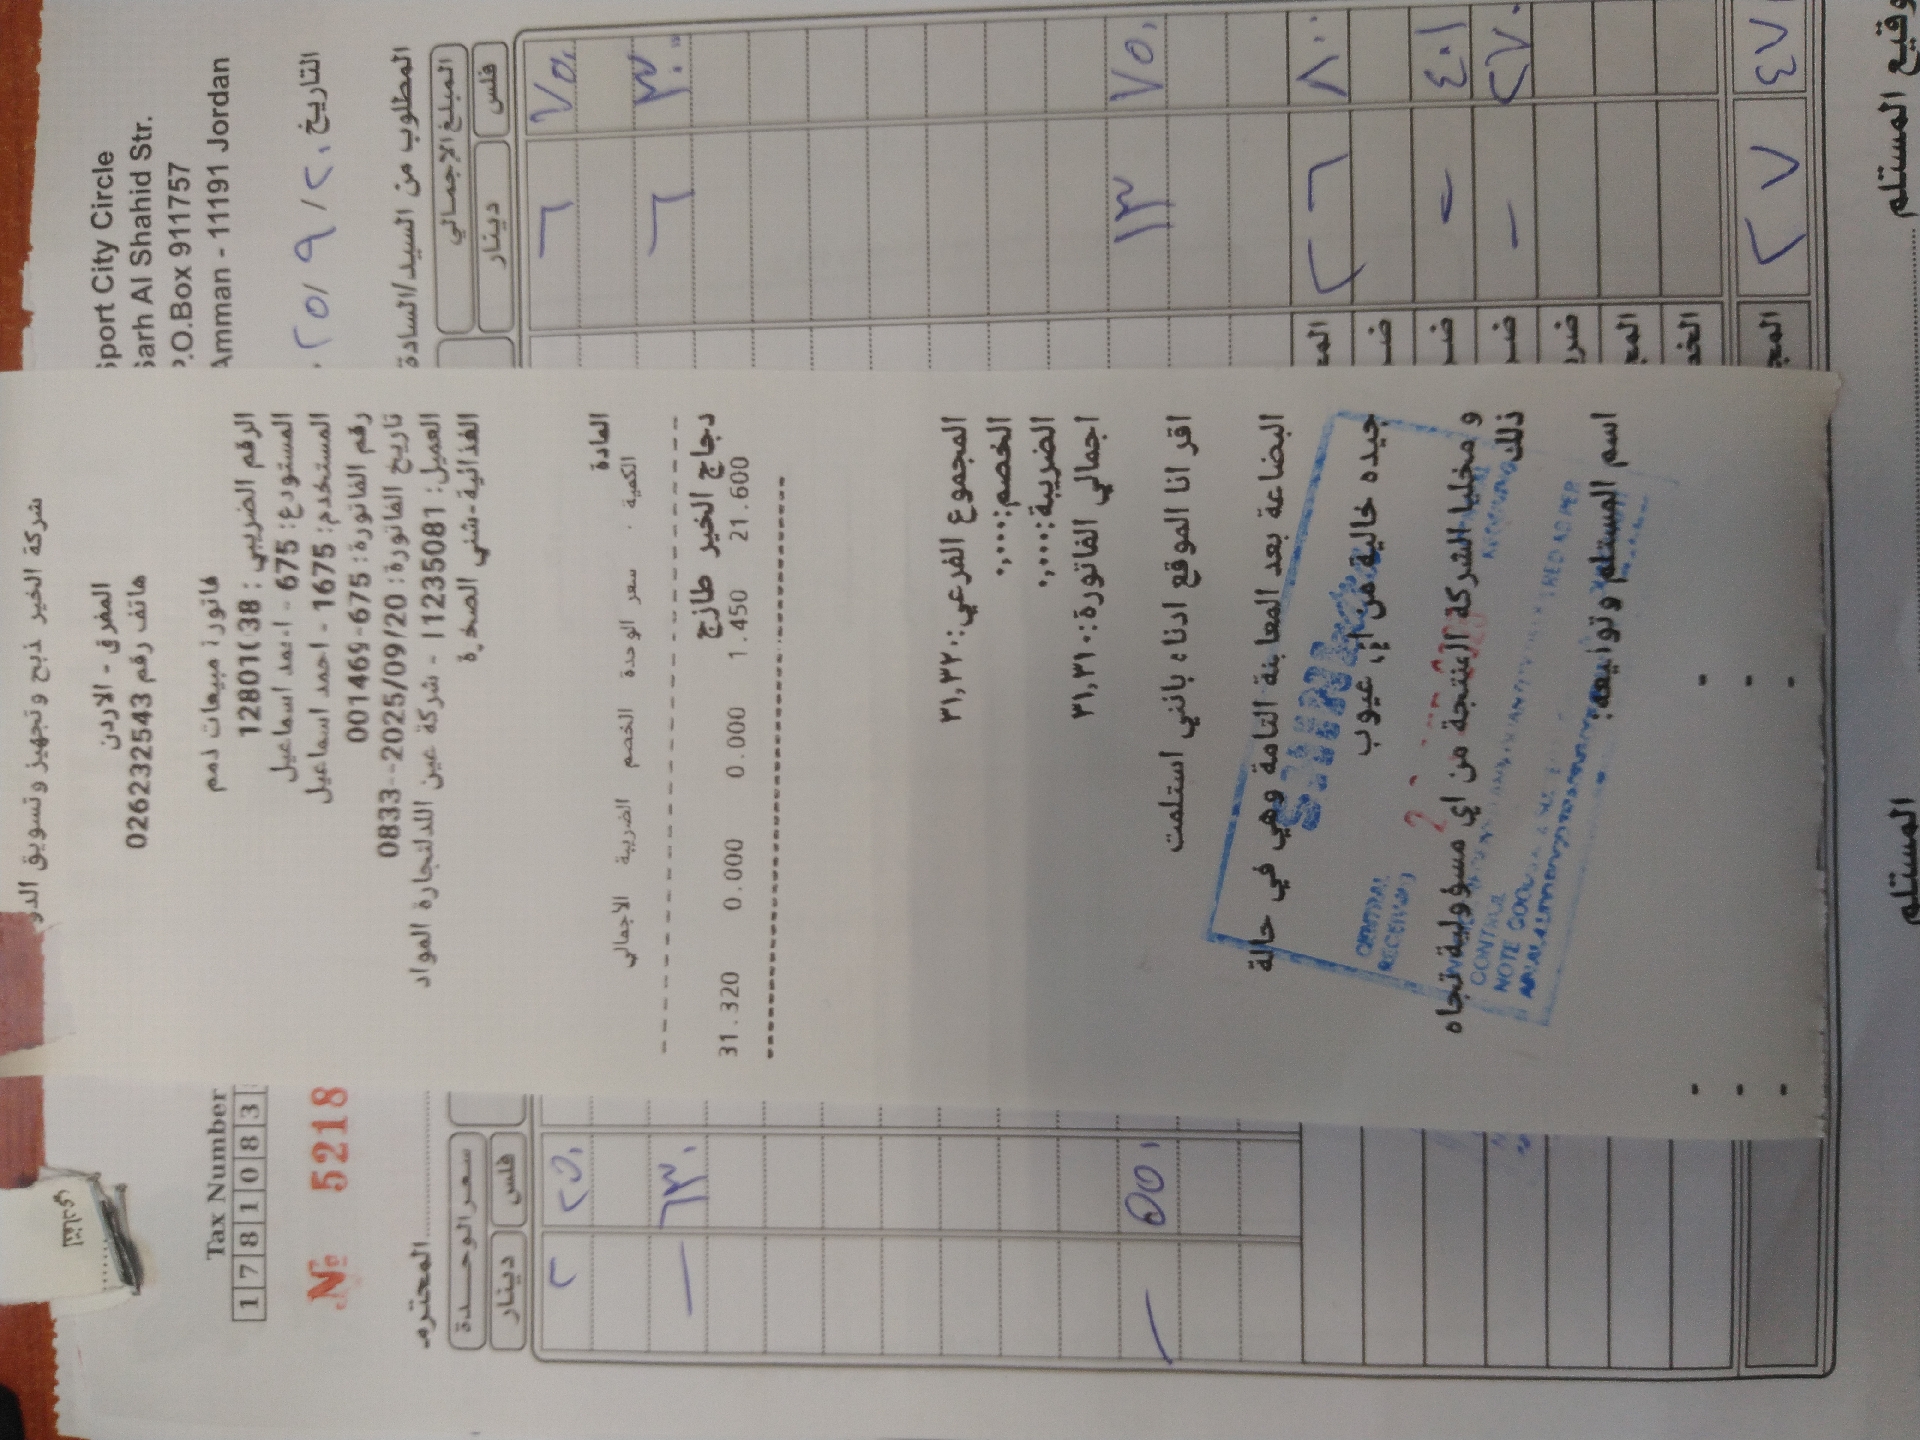 Sport City Circle
Sarh Al Shahid Str.
P.O.Box 911757
Amman - 11191 Jordan
التاريخ
٢٠ / ٩ / ٢٥
Tax Number
1 7 8 1 0 8 3
№ 5218
المطلوب من السيد/السادة
المحترم
المبلغ الإجمالي
فلس دينار
سعر الوحدة
فلس دينار
٧٥٠ ٦
٢٥٠ ٢
٣٠٠ ٦
٦٣٠
٧٥٠ ١٣
٥٥٠ ١
٨٠٠ ٢٦
٤٠١ -
٢٧٠ -
٤٧١ ٢٧
شركة الخير لذبح وتجهيز وتسويق الدو
المفرق - الاردن
هاتف رقم 026232543
فاتورة مبيعات ذمم
الرقم الضريبي :
المستودع: 675 - احمد اسماعيل
المستخدم: 1675 - احمد اسماعيل
رقم الفاتورة: 675-001469
تاريخ الفاتورة: 2025/09/20--0833
العميل: 11235081 - شركة عين اللدلتجارة المواد
الغذائية-شني الصخرة
المادة
الكمية . سعر الوحدة الخصم الضريبة الاجمالي
دجاج الخير طازج
21.600 1.450 0.000 0.000 31.320
المجموع الفرعي: ٣١,٣٢٠
الخصم: ٠,٠٠٠
الضريبة: ٠,٠٠٠
اجمالي الفاتورة: ٣١,٣١٠
اقر انا الموقع ادناه بانني استلمت
البضاعة بعد المعاينة التامة وهي في حالة
جيده خالية من اي عيوب
و مخليا الشركة المنتجة من اي مسؤولية تجاه
ذلك
اسم المستلم و توقيعه:
CENTRAL
RECEIVING
المستلم
توقيع المستلم